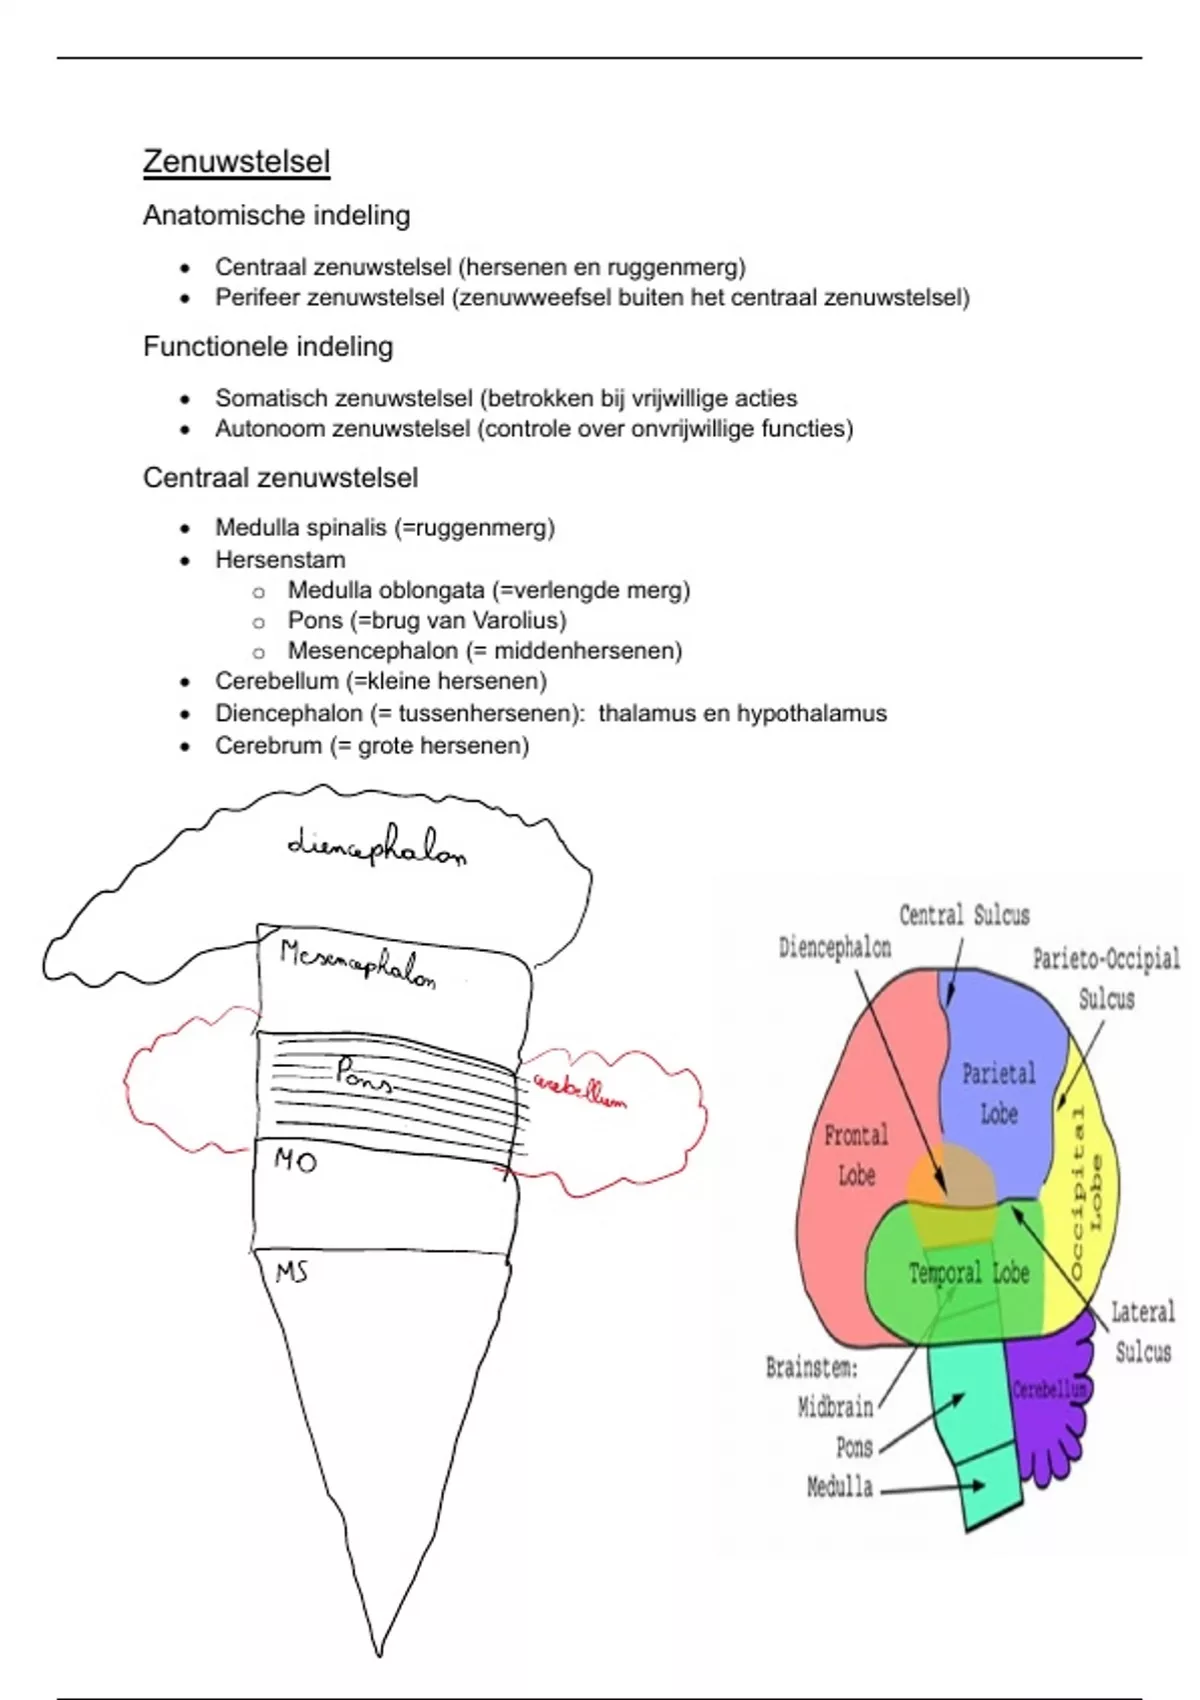 Zenuwstelsel
Anatomische indeling
• Centraal zenuwstelsel (hersenen en ruggenmerg)
• Perifeer zenuwstelsel (zenuwweefsel buiten het centraal zenuwstelsel)
Functionele indeling
• Somatisch zenuwstelsel (betrokken bij vrijwillige acties
• Autonoom zenuwstelsel (controle over onvrijwillige functies)
Centraal zenuwstelsel
• Medulla spinalis (=ruggenmerg)
• Hersenstam
o Medulla oblongata (=verlengde merg)
o Pons (=brug van Varolius)
o Mesencephalon (= middenhersenen)
• Cerebellum (=kleine hersenen)
• Diencephalon (= tussenhersenen): thalamus en hypothalamus
• Cerebrum (= grote hersenen)
diencephalon
Mesencephalon
Pons
cerebellum
MO
MS
Central Sulcus
Diencephalon
Parieto-Occipial
Sulcus
Parietal
Lobe
Frontal
Lobe
Occipital
Lobe
Temporal Lobe
Lateral
Sulcus
Brainstem:
Midbrain
Cerebellum
Pons
Medulla